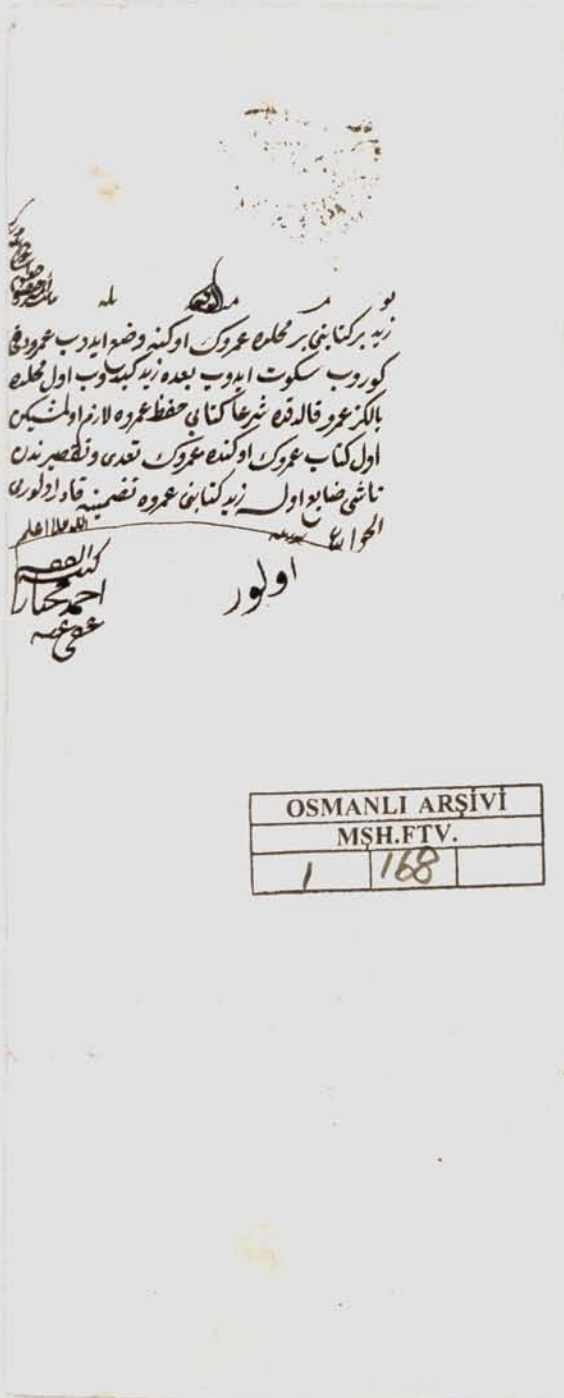 بو
زيد بر كتابنى بر محلده عمروك اوكنه وضع ايدوب عمرو دخى
كوروب سكوت ايدوب بعده زيد كيدوب اول محلده
يالكز عمرو قالدقده شرعا كتابى حفظ عمروه لازم اولمشيكن
اول كتاب عمروك اوكنده عمروك تعدى وتقصيرندن
ناشى ضايع اولسه زيد كتابنى عمروه تضمينه قادر اولورمى
الجواب الله اعلم
اولور
كتبه الفقير
احمد مختار
عفى عنه
OSMANLI ARŞİVİ
MŞH.FTV.
1 168